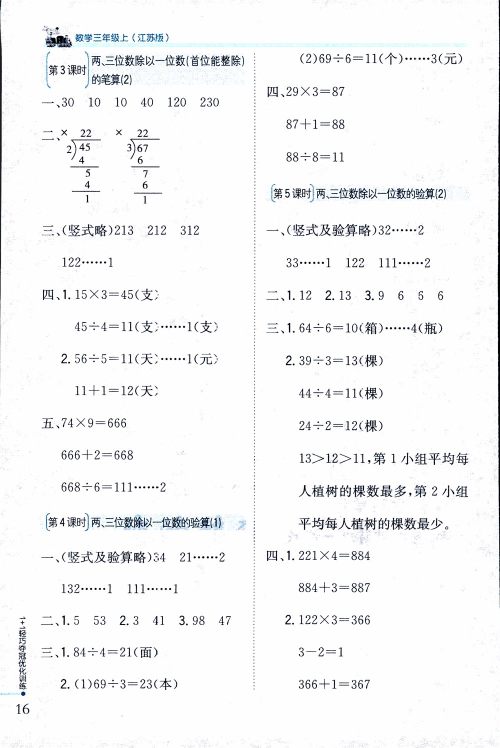 数学三年级上(江苏版)
第3课时 两、三位数除以一位数(首位能整除)
的笔算(2)
一、30 10 10 40 120 230
二、× 22 × 22
2)45 3)67
4 6
5 7
4 6
1 1
三、(竖式略)213 212 312
122……1
四、1. 15×3=45(支)
45÷4=11(支)……1(支)
2. 56÷5=11(天)……1(元)
11+1=12(天)
五、74×9=666
666+2=668
668÷6=111……2
第4课时 两、三位数除以一位数的验算(1)
一、(竖式及验算略)34 21……2
132……1 111……1
二、1. 5 53 2. 3 41 3. 98 47
三、1. 84÷4=21(面)
2. (1)69÷3=23(本)
(2)69÷6=11(个)……3(元)
四、29×3=87
87+1=88
88÷8=11
第5课时 两、三位数除以一位数的验算(2)
一、(竖式及验算略)32……2
33……1 122 111……2
二、1. 12 2. 13 3. 9 6 6 6
三、1. 64÷6=10(箱)……4(瓶)
2. 39÷3=13(棵)
44÷4=11(棵)
24÷2=12(棵)
13>12>11,第1小组平均每
人植树的棵数最多,第2小组
平均每人植树的棵数最少。
四、1. 221×4=884
884+3=887
2. 122×3=366
3-2=1
366+1=367
1+1轻巧夺冠优化训练
16